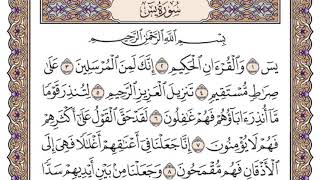 سُورَةُ يسٓ
بِسْمِ ٱللَّهِ ٱلرَّحْمَٰنِ ٱلرَّحِيمِ
يسٓ ١ وَٱلْقُرْءَانِ ٱلْحَكِيمِ ٢ إِنَّكَ لَمِنَ ٱلْمُرْسَلِينَ ٣ عَلَىٰ
صِرَٰطٍ مُّسْتَقِيمٍ ٤ تَنزِيلَ ٱلْعَزِيزِ ٱلرَّحِيمِ ٥ لِتُنذِرَ قَوْمًا
مَّآ أُنذِرَ ءَابَآؤُهُمْ فَهُمْ غَٰفِلُونَ ٦ لَقَدْ حَقَّ ٱلْقَوْلُ عَلَىٰٓ أَكْثَرِهِمْ
فَهُمْ لَا يُؤْمِنُونَ ٧ إِنَّا جَعَلْنَا فِىٓ أَعْنَٰقِهِمْ أَغْلَٰلًا فَهِىَ إِلَى
ٱلْأَذْقَانِ فَهُم مُّقْمَحُونَ ٨ وَجَعَلْنَا مِنۢ بَيْنِ أَيْدِيهِمْ سَدًّا